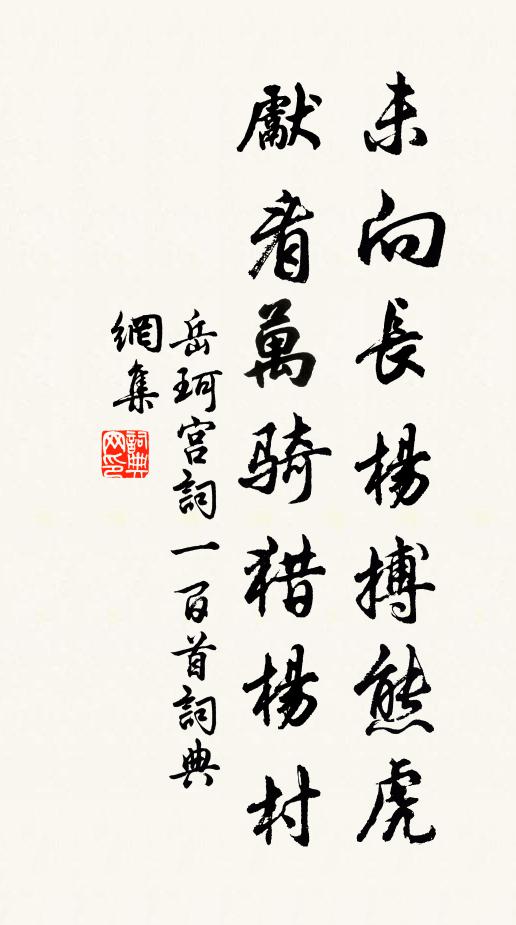 未向長楊搏熊虎
獻看萬騎猎楊村
岳珂宫詞一百首詞典
網集
詞典
网印